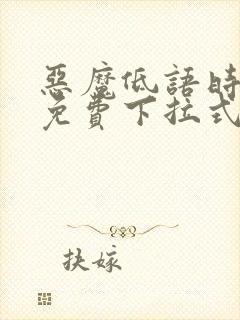 惡魔低語時
免費下拉式
扶嫁